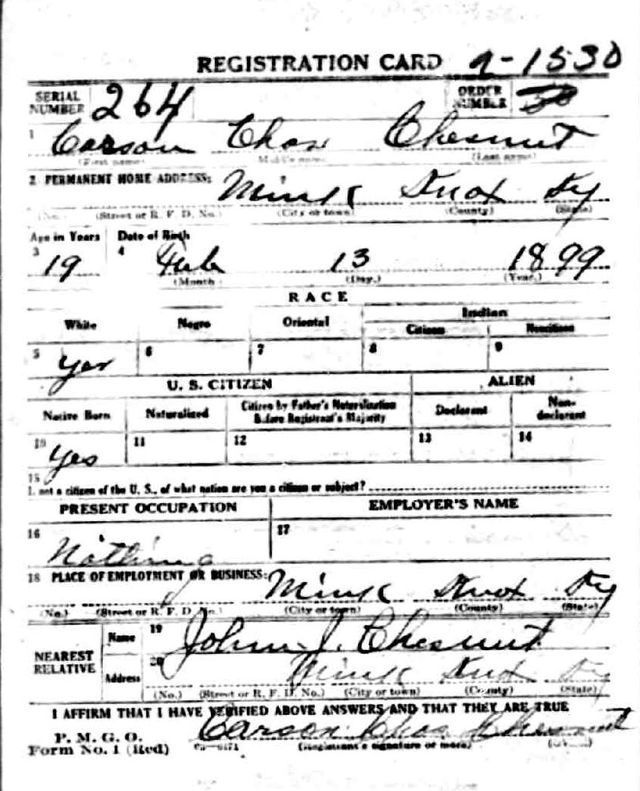 REGISTRATION CARD 9-1530
SERIAL NUMBER 264 ORDER NUMBER
1 Carson Chas Chesnut
(First name) (Middle name) (Last name)
2 PERMANENT HOME ADDRESS: Mink Knox Ky
(No.) (Street or R. F. D. No.) (City or town) (County) (State)
Age in Years Date of Birth
3 19 4 Feb 13 1899
(Month) (Day.) (Year.)
RACE
White Negro Oriental Indian
Citizen Noncitizen
5 Yes 6 7 8 9
U. S. CITIZEN ALIEN
Native Born Naturalized Citizen by Father's Naturalization Before Registrant's Majority Declarant Non-declarant
10 Yes 11 12 13 14
15
I. not a citizen of the U. S., of what nation are you a citizen or subject?
PRESENT OCCUPATION EMPLOYER'S NAME
16 Nothing 17
18 PLACE OF EMPLOYMENT OR BUSINESS: Mink Knox Ky
(No.) (Street or R. F. D. No.) (City or town) (County) (State)
NEAREST RELATIVE Name 19 John J. Chesnut
Address 20 Mink Knox Ky
(No.) (Street or R. F. D. No.) (City or town) (County) (State)
I AFFIRM THAT I HAVE VERIFIED ABOVE ANSWERS AND THAT THEY ARE TRUE
P. M. G. O.
Form No. 1 (Red) Carson Chas Chesnut
(Registrant's signature or mark)